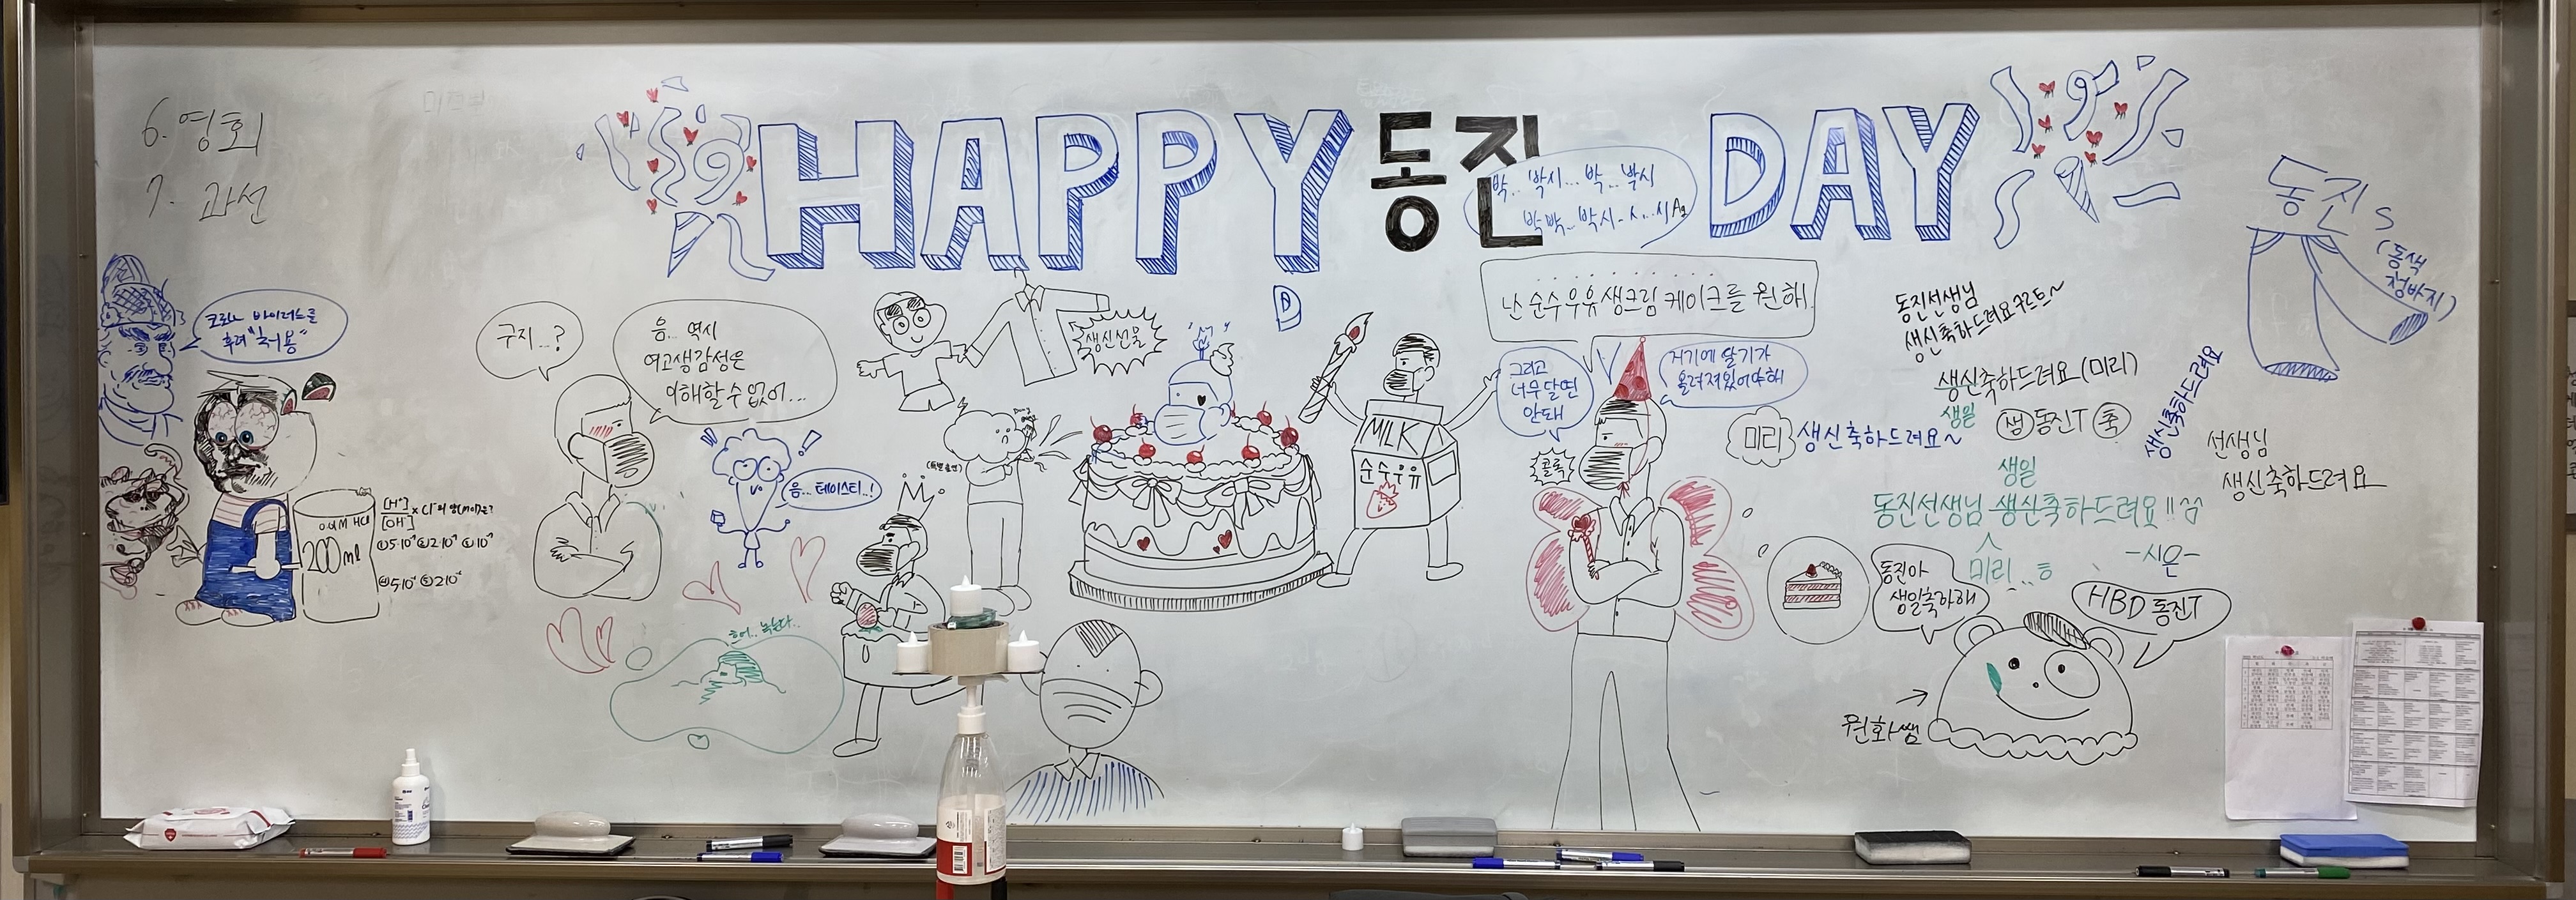 6. 영회
7. 과선
HAPPY 동진 DAY
박... 박시... 박... 박시
D
동진 S
(동색
청바지)
코로나 바이러스를
후려 "허용"
구지...?
음... 역시
여고생감성은
이해할 수 없어...
생신선물
난 순수우유생크림 케이크를 원해.
그리고
너무달면
안돼
거기에 딸기가
올려져있어야해
콜록
음... 테이스티..!
흐어.. 녹는다..
0.01M HCl
200ml
MILK
순수우유
동진선생님
생신축하드려요
생신축하드려요 (미리)
생일
쌤 동진T 축
미리 생신축하드려요~
생신축하드려요
선생님
생신축하드려요
생일
동진선생님 생신축하드려요!!
미리..ㅎ
-시은-
동진아
생일축하해
HBD 동진T
원화쌤